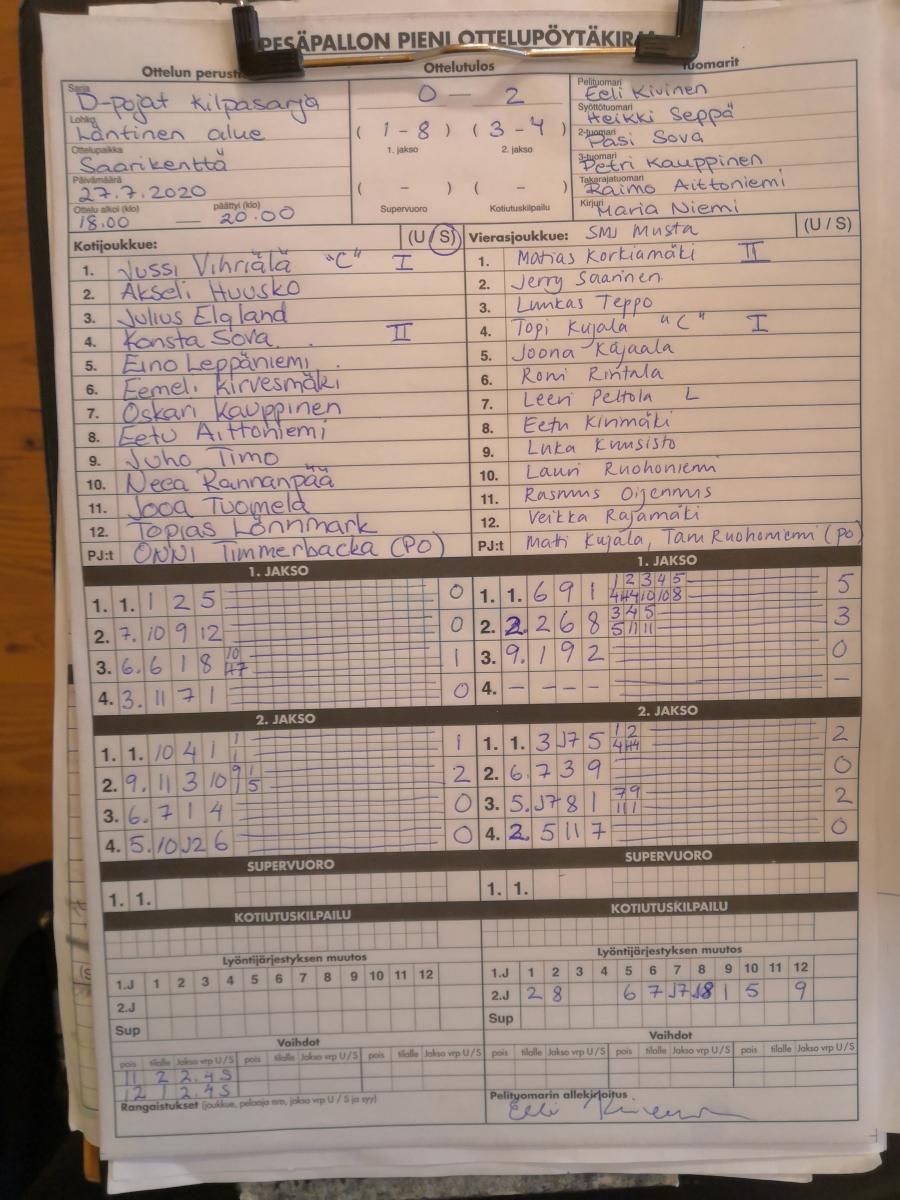 PESÄPALLON PIENI OTTELUPÖYTÄKIRJA
Ottelun perust
Ottelutulos
Tuomarit
Sarja D-pojat kilpasarja
Lohko Läntinen alue
Ottelupaikka Saarikenttä
Päivämäärä 27.7.2020
Ottelu alkoi (klo) 18.00 — päättyi (klo) 20.00
0 — 2
( 1 - 8 ) ( 3 - 4 )
1. jakso 2. jakso
( - ) ( - )
Supervuoro Kotiutuskilpailu
Pelituomari Eeli Kivinen
Syöttötuomari Heikki Seppä
2-tuomari Pasi Sova
3-tuomari Petri Kauppinen
Takarajatuomari Raimo Aittoniemi
Kirjuri Maria Niemi
Kotijoukkue: (U / S)
1. Jussi Vihriälä "C" I
2. Akseli Huusko
3. Julius Elgland
4. Konsta Sova II
5. Eino Leppäniemi
6. Eemeli Kirvesmäki
7. Oskari Kauppinen
8. Eetu Aittoniemi
9. Juho Timo
10. Neea Rannanpää
11. Jooa Tuomela
12. Topias Lönnmark
PJ:t ONNI Timmerbacka (PO)
Vierasjoukkue: SMJ Musta (U / S)
1. Matias Korkiamäki II
2. Jerry Saarinen
3. Luukas Teppo
4. Topi Kujala "C" I
5. Joona Kajaala
6. Roni Rintala
7. Leevi Peltola L
8. Eetu Kinmäki
9. Luka Kuusisto
10. Lauri Ruohoniemi
11. Rasmus Oijennus
12. Veikka Rajamäki
PJ:t Matti Kujala, Tani Ruohoniemi (po)
1. JAKSO
1. 1. 1 2 5 0
2. 7. 10 9 12 0
3. 6. 6 1 8 10 1
4. 3. 11 7 1 0
1. JAKSO
1. 1. 6 9 1 1 2 3 4 5 5
4 4 4 10 10 8
2. 2. 2 6 8 3 4 5 3
5 11 11
3. 9. 1 9 2 0
4. - - - - -
2. JAKSO
1. 1. 10 4 1 1 1
1
2. 9. 11 3 10 9 1 2
1 5
3. 6. 7 1 4 0
4. 5. 10 J2 6 0
2. JAKSO
1. 1. 3 J7 5 1 2 2
2. 6. 7 3 9 0
3. 5. J7 8 1 7 9 2
4. 2. 5 11 7 0
SUPERVUORO
1. 1.
SUPERVUORO
1. 1.
KOTIUTUSKILPAILU
KOTIUTUSKILPAILU
Lyöntijärjestyksen muutos
1.J 1 2 3 4 5 6 7 8 9 10 11 12
2.J
Sup
Lyöntijärjestyksen muutos
1.J 1 2 3 4 5 6 7 8 9 10 11 12
2.J 2 8 6 7 J7 J8 1 5 9
Sup
Vaihdot
pois tilalle Jakso vrp U/S pois tilalle Jakso vrp U/S pois tilalle Jakso vrp U/S
11 2 2.4 S
12 1 2.4 S
Rangaistukset (joukkue, pelaaja nro, jakso vrp U / S ja syy)
Vaihdot
pois tilalle Jakso vrp U/S pois tilalle Jakso vrp U/S pois tilalle Jakso vrp U/S
Pelituomarin allekirjoitus
Eeli Kivinen